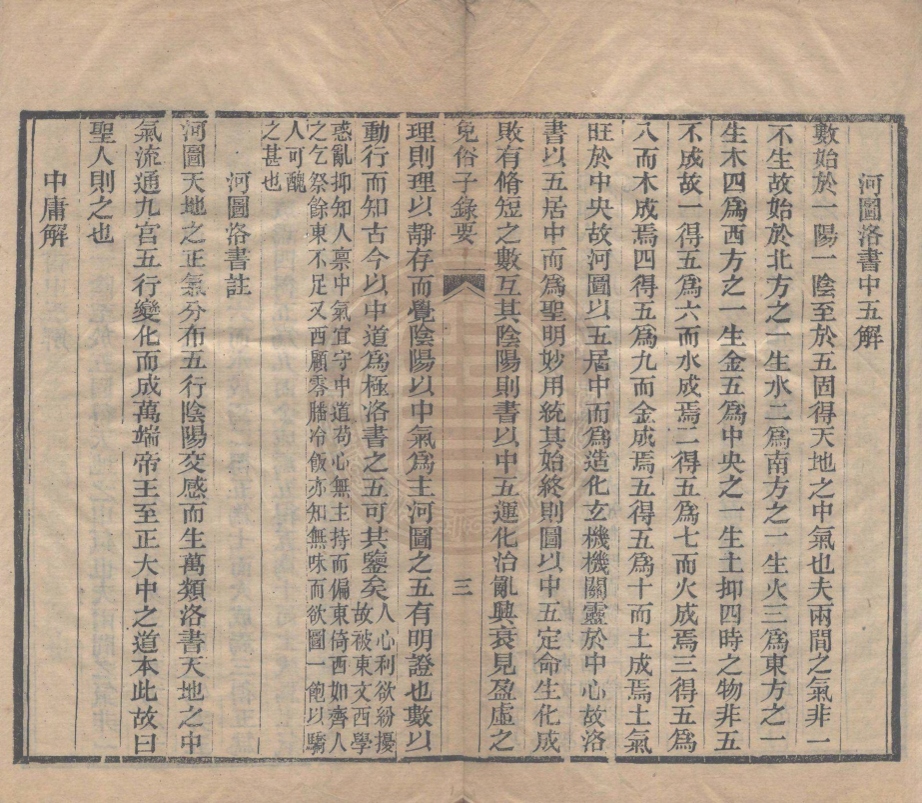 河圖洛書中五解
數始於一陽一陰至於五固得天地之中氣也夫兩間之氣非一
不生故始於北方之一生水二爲南方之一生火三爲東方之一
生木四爲西方之一生金五爲中央之一生土抑四時之物非五
不成故一得五爲六而水成焉二得五爲七而火成焉三得五爲
八而木成焉四得五爲九而金成焉五得五爲十而土成焉土氣
旺於中央故河圖以五居中而爲造化玄機機關靈於中心故洛
書以五居中而爲聖明妙用統其始終則圖以中五定命生化成
敗有脩短之數互其陰陽則書以中五運化治亂興衰見盈虛之
免俗子錄要
三
理則理以靜存而覺陰陽以中氣爲主河圖之五有明證也數以
動行而知古今以中道爲極洛書之五可其鑒矣人心利欲紛擾
故被東文西學
惑亂抑知人禀中氣宜守中道苟心無主持而偏東倚西如齊人
之乞祭餘東不足又西顧零膰冷飯亦知無味而欲圖一飽以驕
人可醜
之甚也
河圖洛書註
河圖天地之正氣分布五行陰陽交感而生萬類洛書天地之中
氣流通九宮五行變化而成萬端帝王至正大中之道本此故曰
聖人則之也
中庸解